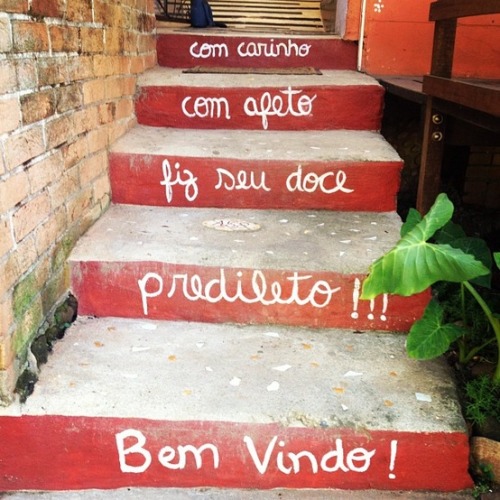 com carinho
com afeto
fiz seu doce
predileto !!!
Bem Vindo !